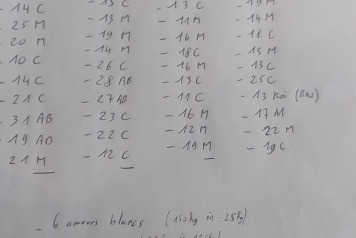 - 14 C - 13 C - 13 C - 19 M
- 25 M - 13 M - 11 M - 14 M
- 20 M - 19 M - 16 M - 18 C
- 10 C - 14 M - 18 C - 15 M
- 14 C - 26 C - 16 M - 13 C
- 21 C - 28 AB - 13 C - 25 C
- 31 AB - 27 AB - 11 C - 13 Koi
- 19 AB - 23 C - 16 M - 17 M
21 M - 22 C - 12 M - 22 M
- 12 C - 19 M - 19 C
- 6 amours blancs (150kg m̄ - 25kg)